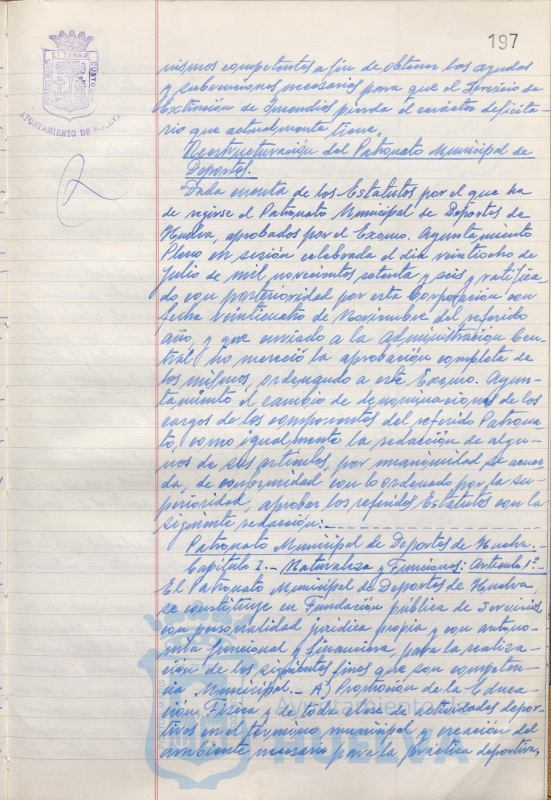 197
AYUNTAMIENTO DE HUELVA
nismos competentes a fin de obtener las ayudas
y subvenciones necesarias para que el Servicio de
Extinción de Incendios pierda el carácter deficita-
rio que actualmente tiene.
Reestructuración del Patronato Municipal de
Deportes.
"Dada cuenta de los Estatutos por el que ha
de regirse el Patronato Municipal de Deportes de
Huelva, aprobados por el Excmo. Ayuntamiento
Pleno en sesión celebrada el día veintiocho de
Julio de mil novecientos setenta y seis y ratifica-
do con posterioridad por esta Corporación con
fecha veinticuatro de Noviembre del referido
año, y que enviado a la Administración Cen-
tral no mereció la aprobación completa de
los mismos, ordenando a este Excmo. Ayun-
tamiento el cambio de denominaciones de los
cargos de los componentes del referido Patrona-
to, como igualmente la redacción de algu-
nos de sus artículos, por unanimidad se acuer-
da, de conformidad con lo ordenado por la Su-
perioridad, aprobar los referidos Estatutos con la
siguiente redacción:
Patronato Municipal de Deportes de Huelva.
Capítulo I.- Naturaleza y Funciones: Artículo 1º.-
El Patronato Municipal de Deportes de Huelva,
se constituye en Fundación pública de Servicios,
con personalidad jurídica propia y con autono-
mía funcional y financiera, para la realiza-
ción de los siguientes fines que son competen-
cia Municipal.- A) Promoción de la Educa-
ción Física y de toda clase de actividades depor-
tivas en el término municipal y creación del
ambiente necesario para la práctica deportiva,
Ayuntamiento de
HUELVA